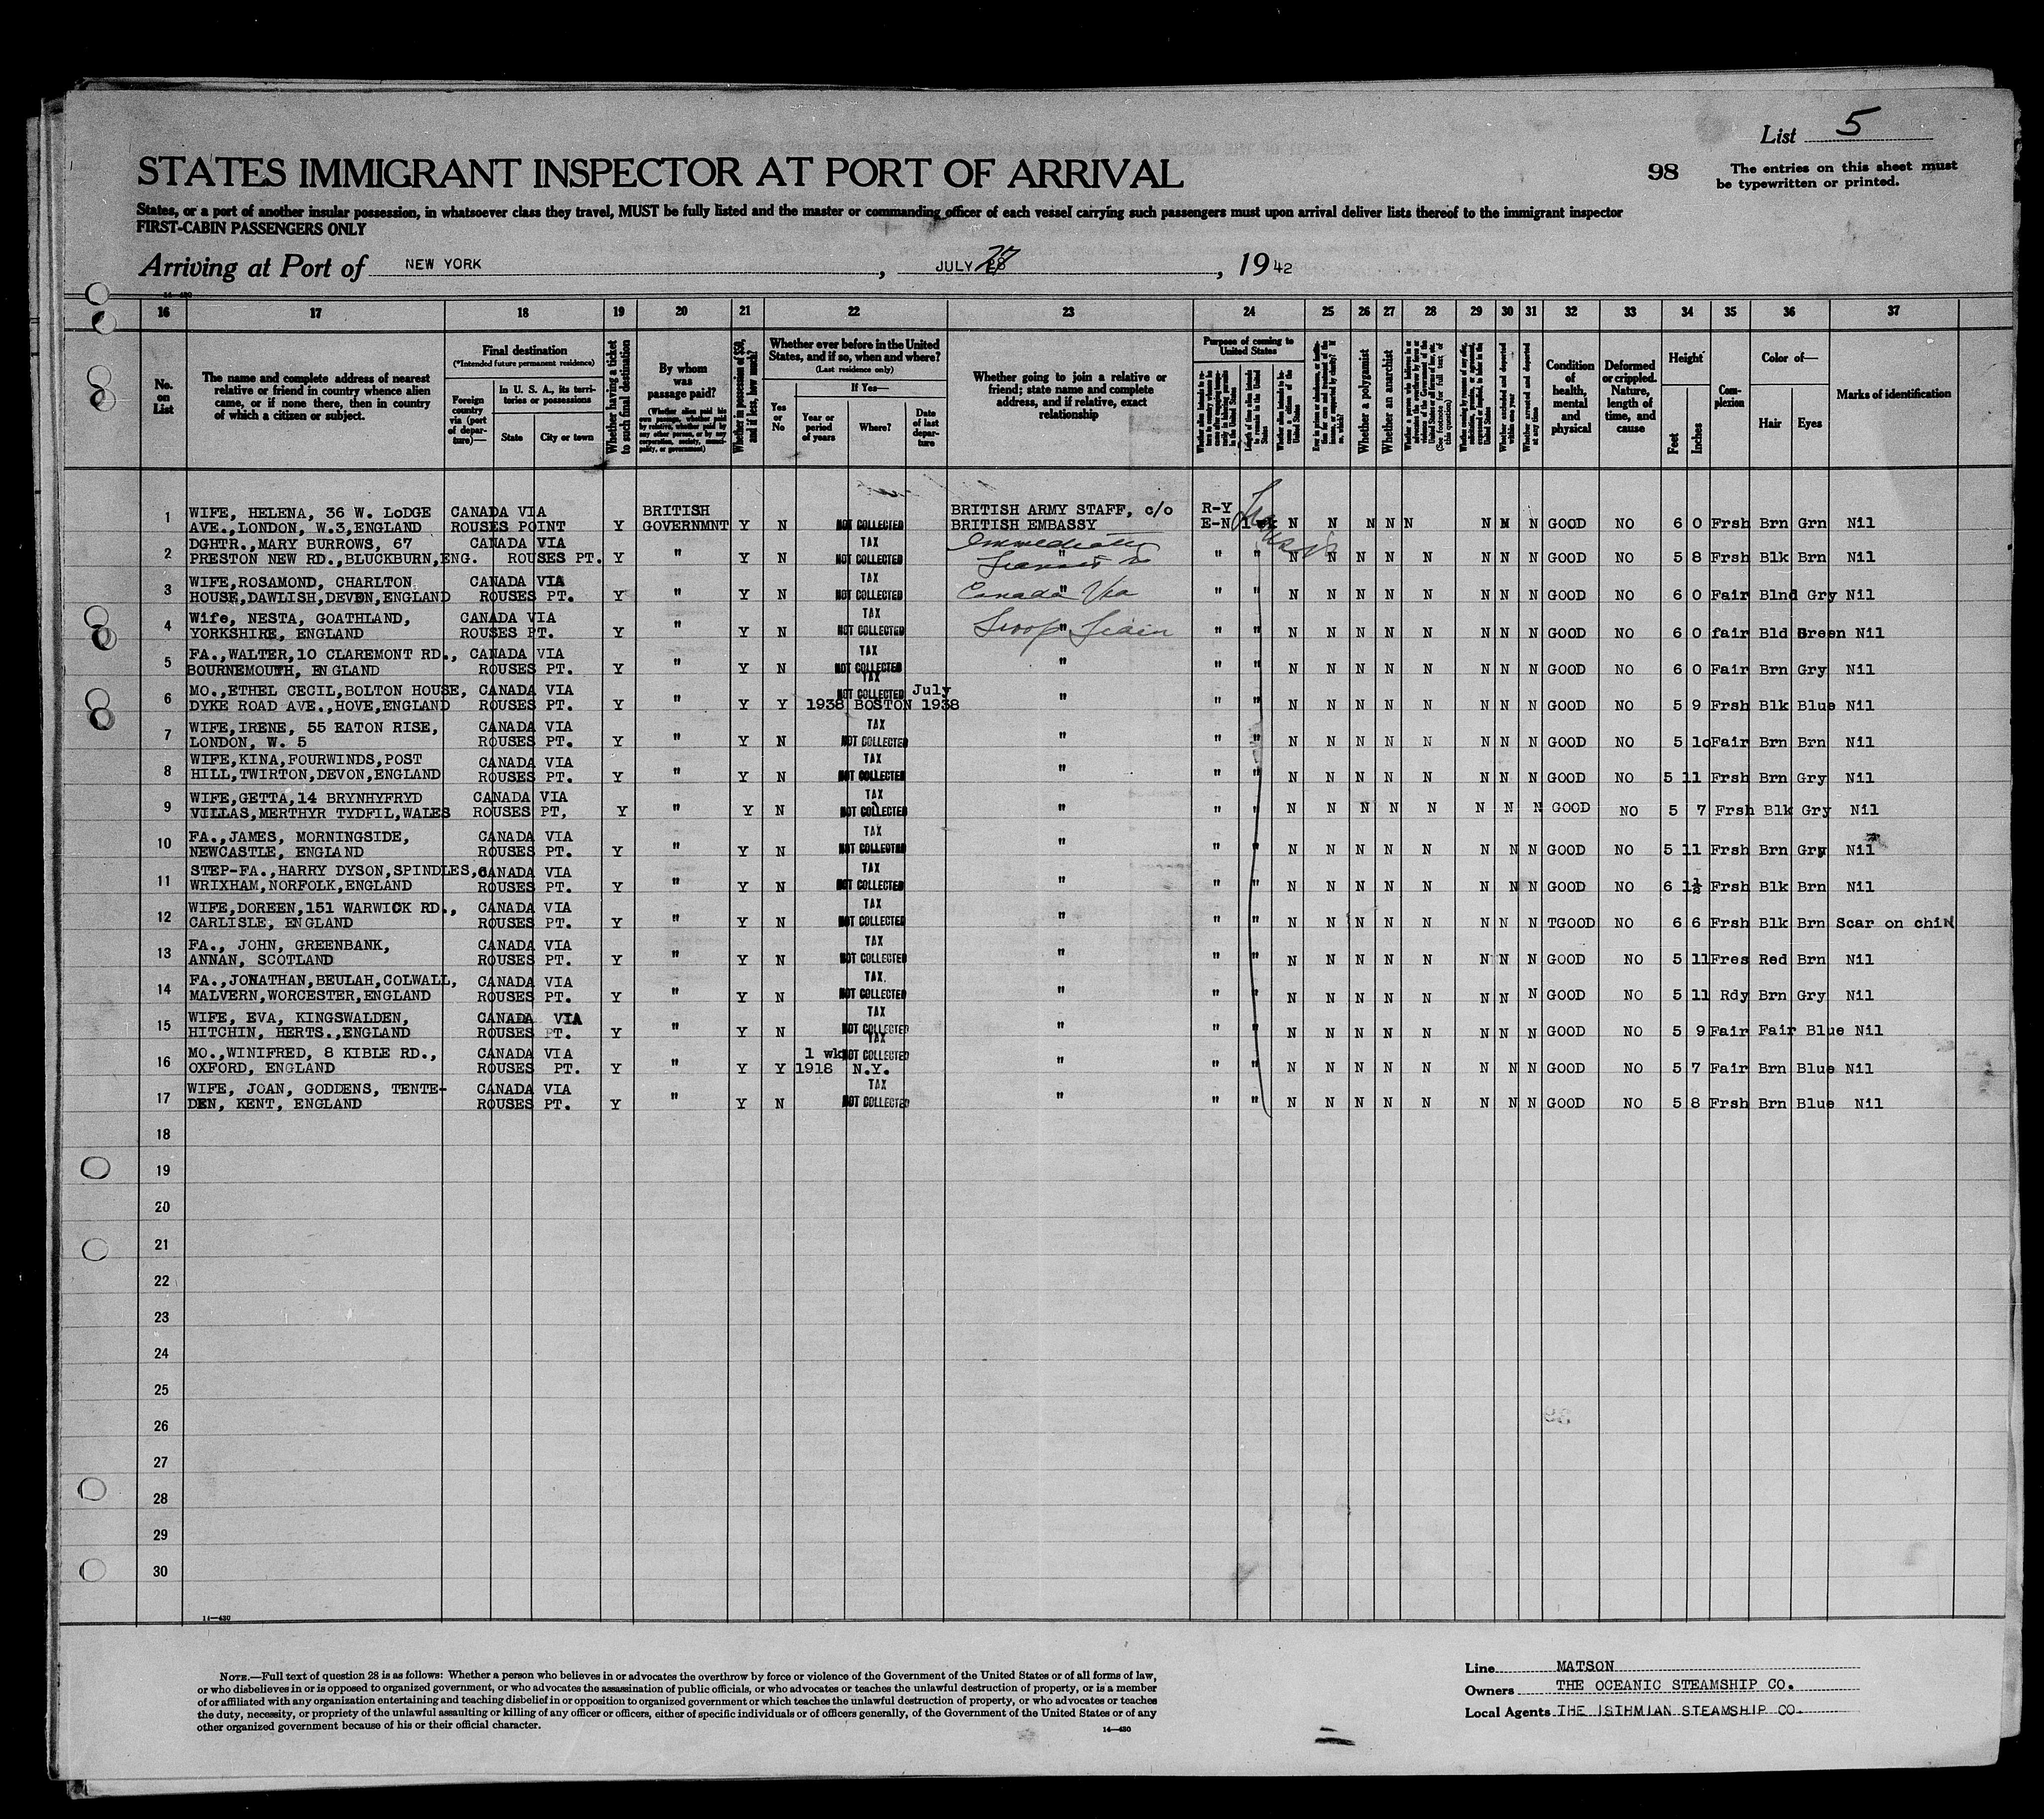 List 5
STATES IMMIGRANT INSPECTOR AT PORT OF ARRIVAL
98
The entries on this sheet must
be typewritten or printed.
States, or a port of another insular possession, in whatsoever class they travel, MUST be fully listed and the master or commanding officer of each vessel carrying such passengers must upon arrival deliver lists thereof to the immigrant inspector
FIRST-CABIN PASSENGERS ONLY
Arriving at Port of NEW YORK, JULY, 1942
16 17 18 19 20 21 22 23 24 25 26 27 28 29 30 31 32 33 34 35 36 37
No. on List
The name and complete address of nearest relative or friend in country whence alien came, or if none there, then in country of which a citizen or subject.
Final destination
(*Intended future permanent residence)
Foreign country via (port of departure)—
In U. S. A., its territories or possessions
State
City or town
Whether having a ticket to such final destination
By whom was passage paid?
(Whether alien paid his own passage, whether paid by relative, whether paid by any other person, or by any corporation, society, municipality, or government)
Whether in possession of $50, and if less, how much?
Whether ever before in the United States, and if so, when and where?
(Last residence only)
Yes or No
If Yes—
Year or period of years
Where?
Date of last departure
Whether going to join a relative or friend; state name and complete address, and if relative, exact relationship
Purpose of coming to United States
Whether a polygamist
Whether an anarchist
Condition of health, mental and physical
Deformed or crippled. Nature, length of time, and cause
Height
Feet
Inches
Complexion
Color of—
Hair
Eyes
Marks of identification
1 WIFE, HELENA, 36 W. LoDGE CANADA VIA BRITISH BRITISH ARMY STAFF, c/o R-Y
AVE., LONDON, W.3,ENGLAND ROUSES POINT Y GOVERNMNT Y N NOT COLLECTED BRITISH EMBASSY E-N N N N N N N N N GOOD NO 6 0 Frsh Brn Grn Nil
2 DGHTR.,MARY BURROWS, 67 CANADA VIA TAX Immediate
PRESTON NEW RD.,BLUCKBURN,ENG. ROUSES PT. Y " Y N NOT COLLECTED " Transit to " " N N N N N N N N GOOD NO 5 8 Frsh Blk Brn Nil
3 WIFE,ROSAMOND, CHARLTON CANADA VIA TAX
HOUSE,DAWLISH,DEVON,ENGLAND ROUSES PT. Y " Y N NOT COLLECTED " Canada Via " " N N N N N N N N GOOD NO 6 0 Fair Blnd Gry Nil
4 Wife, NESTA, GOATHLAND, CANADA VIA TAX
YORKSHIRE, ENGLAND ROUSES PT. Y " Y N NOT COLLECTED " Troop Train " " N N N N N N N N GOOD NO 6 0 fair Bld Green Nil
5 FA.,WALTER,10 CLAREMONT RD., CANADA VIA TAX
BOURNEMOUTH, ENGLAND ROUSES PT. Y " Y N NOT COLLECTED " " " N N N N N N N N GOOD NO 6 0 Fair Brn Gry Nil
6 MO.,ETHEL CECIL,BOLTON HOUSE, CANADA VIA TAX NOT COLLECTED July
DYKE ROAD AVE.,HOVE,ENGLAND ROUSES PT. Y " Y Y 1938 BOSTON 1938 " " " N N N N N N N N GOOD NO 5 9 Frsh Blk Blue Nil
7 WIFE,IRENE, 55 EATON RISE, CANADA VIA TAX
LONDON, W. 5 ROUSES PT. Y " Y N NOT COLLECTED " " " N N N N N N N N GOOD NO 5 10 Fair Brn Brn Nil
8 WIFE,KINA,FOURWINDS,POST CANADA VIA TAX
HILL,TWIRTON,DEVON,ENGLAND ROUSES PT. Y " Y N NOT COLLECTED " " " N N N N N N N N GOOD NO 5 11 Frsh Brn Gry Nil
9 WIFE,GETTA,14 BRYNHYFRYD CANADA VIA TAX
VILLAS,MERTHYR TYDFIL,WALES ROUSES PT, Y " Y N NOT COLLECTED " " " N N N N N N N N GOOD NO 5 7 Frsh Blk Gry Nil
10 FA.,JAMES, MORNINGSIDE, CANADA VIA TAX
NEWCASTLE, ENGLAND ROUSES PT. Y " Y N NOT COLLECTED " " " N N N N N N N N GOOD NO 5 11 Frsh Brn Gry Nil
11 STEP-FA.,HARRY DYSON,SPINDLES, CANADA VIA TAX
WRIXHAM,NORFOLK,ENGLAND ROUSES PT. Y " Y N NOT COLLECTED " " " N N N N N N N N GOOD NO 6 1½ Frsh Blk Brn Nil
12 WIFE,DOREEN,151 WARWICK RD., CANADA VIA TAX
CARLISLE, ENGLAND ROUSES PT. Y " Y N NOT COLLECTED " " " N N N N N N N N TGOOD NO 6 6 Frsh Blk Brn Scar on chiN
13 FA., JOHN, GREENBANK, CANADA VIA TAX
ANNAN, SCOTLAND ROUSES PT. Y " Y N NOT COLLECTED " " " N N N N N N N N GOOD NO 5 11 Fres Red Brn Nil
14 FA.,JONATHAN,BEULAH,COLWALL, CANADA VIA TAX.
MALVERN,WORCESTER,ENGLAND ROUSES PT. Y " Y N NOT COLLECTED " " " N N N N N N N N GOOD NO 5 11 Rdy Brn Gry Nil
15 WIFE, EVA, KINGSWALDEN, CANADA VIA TAX
HITCHIN, HERTS.,ENGLAND ROUSES PT. Y " Y N NOT COLLECTED " " " N N N N N N N N GOOD NO 5 9 Fair Fair Blue Nil
16 MO.,WINIFRED, 8 KIBLE RD., CANADA VIA 1 wk TAX NOT COLLECTED
OXFORD, ENGLAND ROUSES PT. Y " Y Y 1918 N.Y. " " " N N N N N N N N GOOD NO 5 7 Fair Brn Blue Nil
17 WIFE, JOAN, GODDENS, TENTE- CANADA VIA TAX
DEN, KENT, ENGLAND ROUSES PT. Y " Y N NOT COLLECTED " " " N N N N N N N N GOOD NO 5 8 Frsh Brn Blue Nil
18
19
20
21
22
23
24
25
26
27
28
29
30
14—430
NOTE.—Full text of question 28 is as follows: Whether a person who believes in or advocates the overthrow by force or violence of the Government of the United States or of all forms of law,
or who disbelieves in or is opposed to organized government, or who advocates the assassination of public officials, or who advocates or teaches the unlawful destruction of property, or is a member
of or affiliated with any organization entertaining and teaching disbelief in or opposition to organized government or which teaches the unlawful destruction of property, or who advocates or teaches
the duty, necessity, or propriety of the unlawful assaulting or killing of any officer or officers, either of specific individuals or of officers generally, of the Government of the United States or of any
other organized government because of his or their official character.
14—430
Line MATSON
Owners THE OCEANIC STEAMSHIP CO.
Local Agents THE ISTHMIAN STEAMSHIP CO.